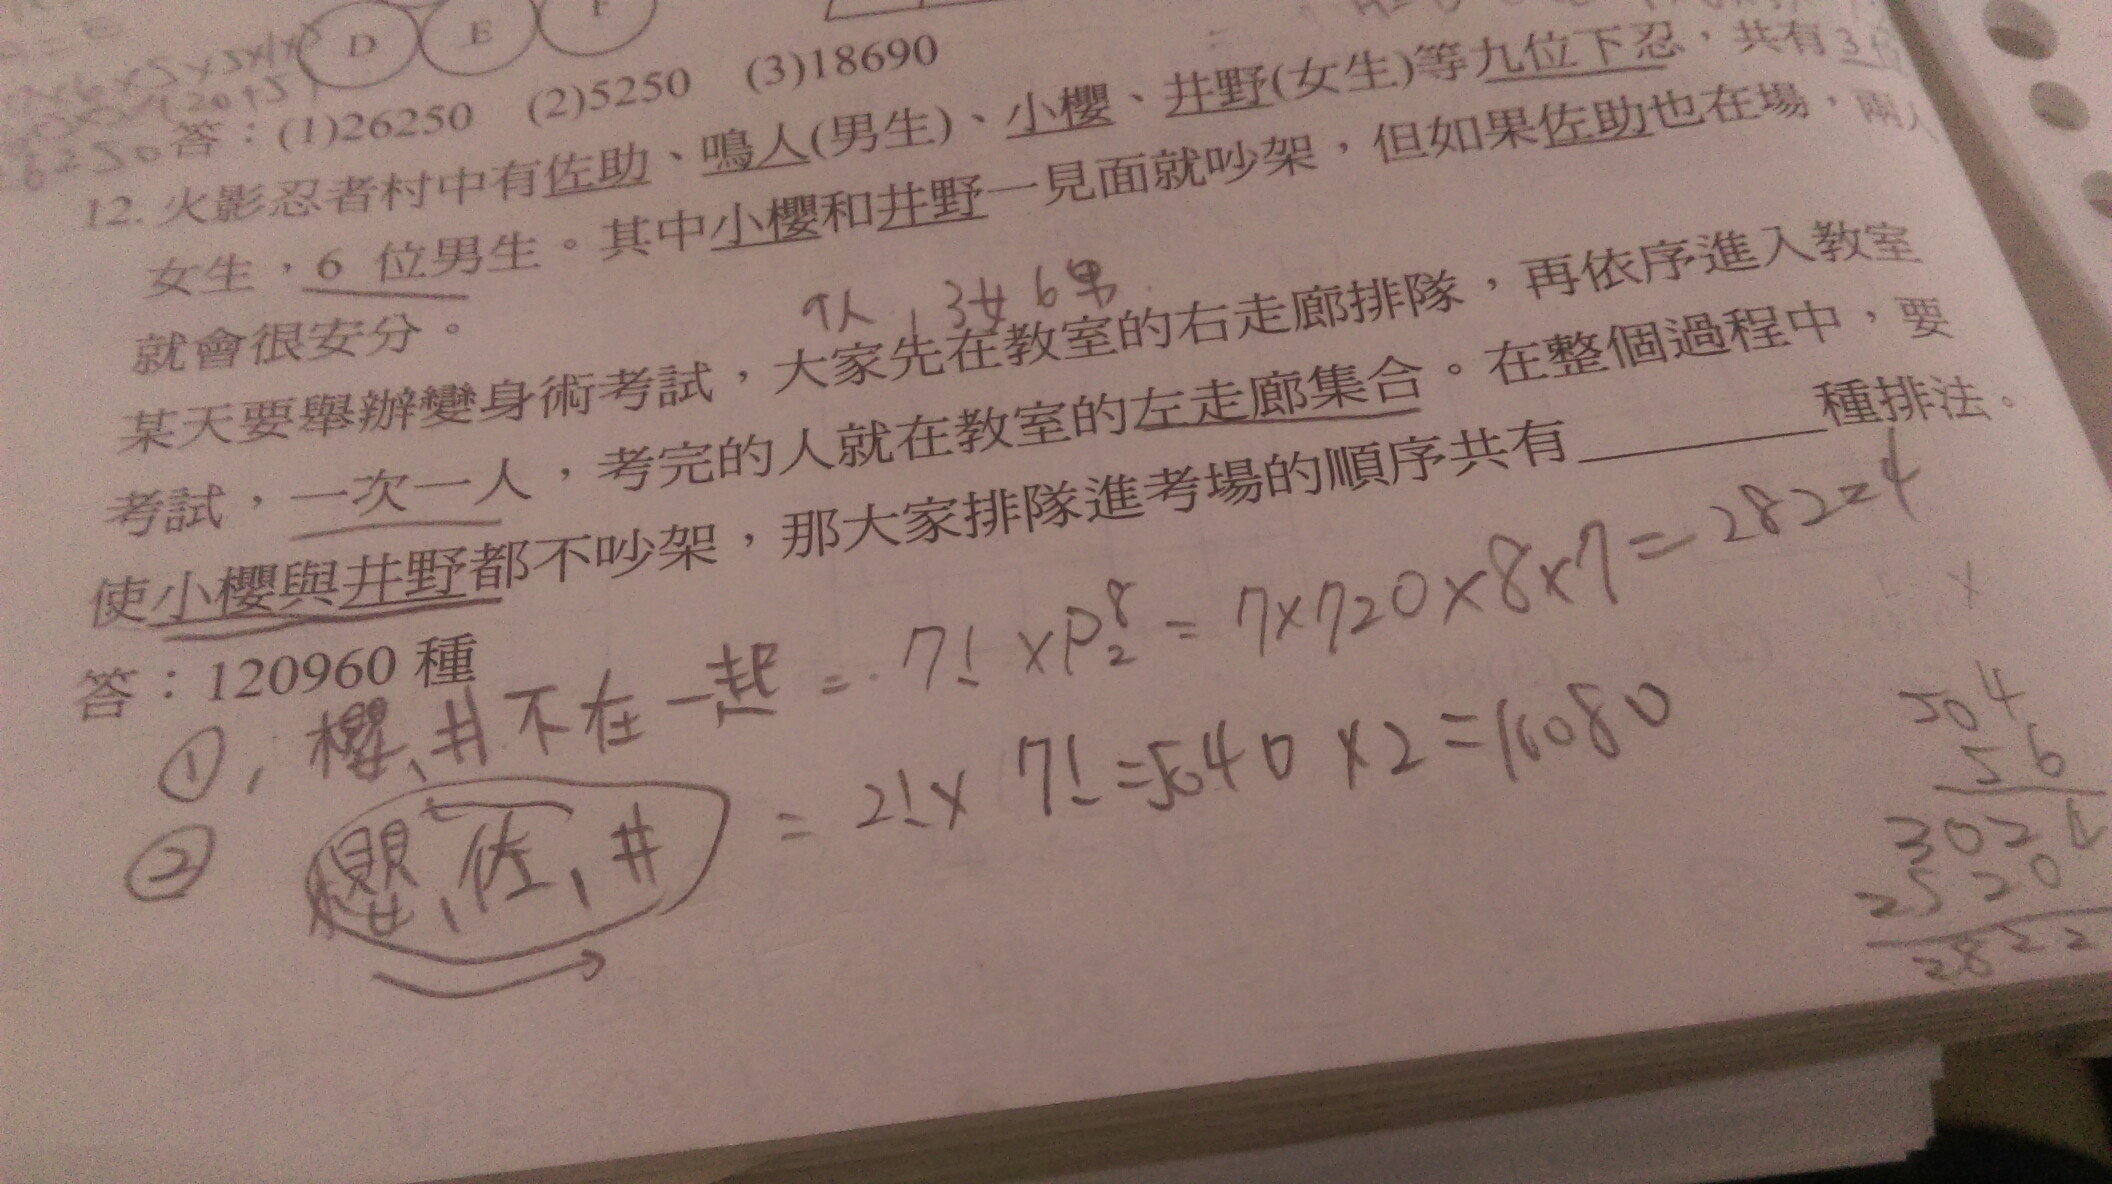 D E F
答：(1)26250 (2)5250 (3)18690
12. 火影忍者村中有佐助、鳴人(男生)、小櫻、井野(女生)等九位下忍，共有3位
女生，6 位男生。其中小櫻和井野一見面就吵架，但如果佐助也在場，兩人
就會很安分。
9人，3女6男
某天要舉辦變身術考試，大家先在教室的右走廊排隊，再依序進入教室
考試，一次一人，考完的人就在教室的左走廊集合。在整個過程中，要
使小櫻與井野都不吵架，那大家排隊進考場的順序共有 種排法。
答：120960 種
①、櫻、井不在一起 = 7! × P⁸₂ = 7×720×8×7 = 28224
② 櫻、佐、井 = 2! × 7! = 5040 × 2 = 10080
504
56
3024
2520
2822